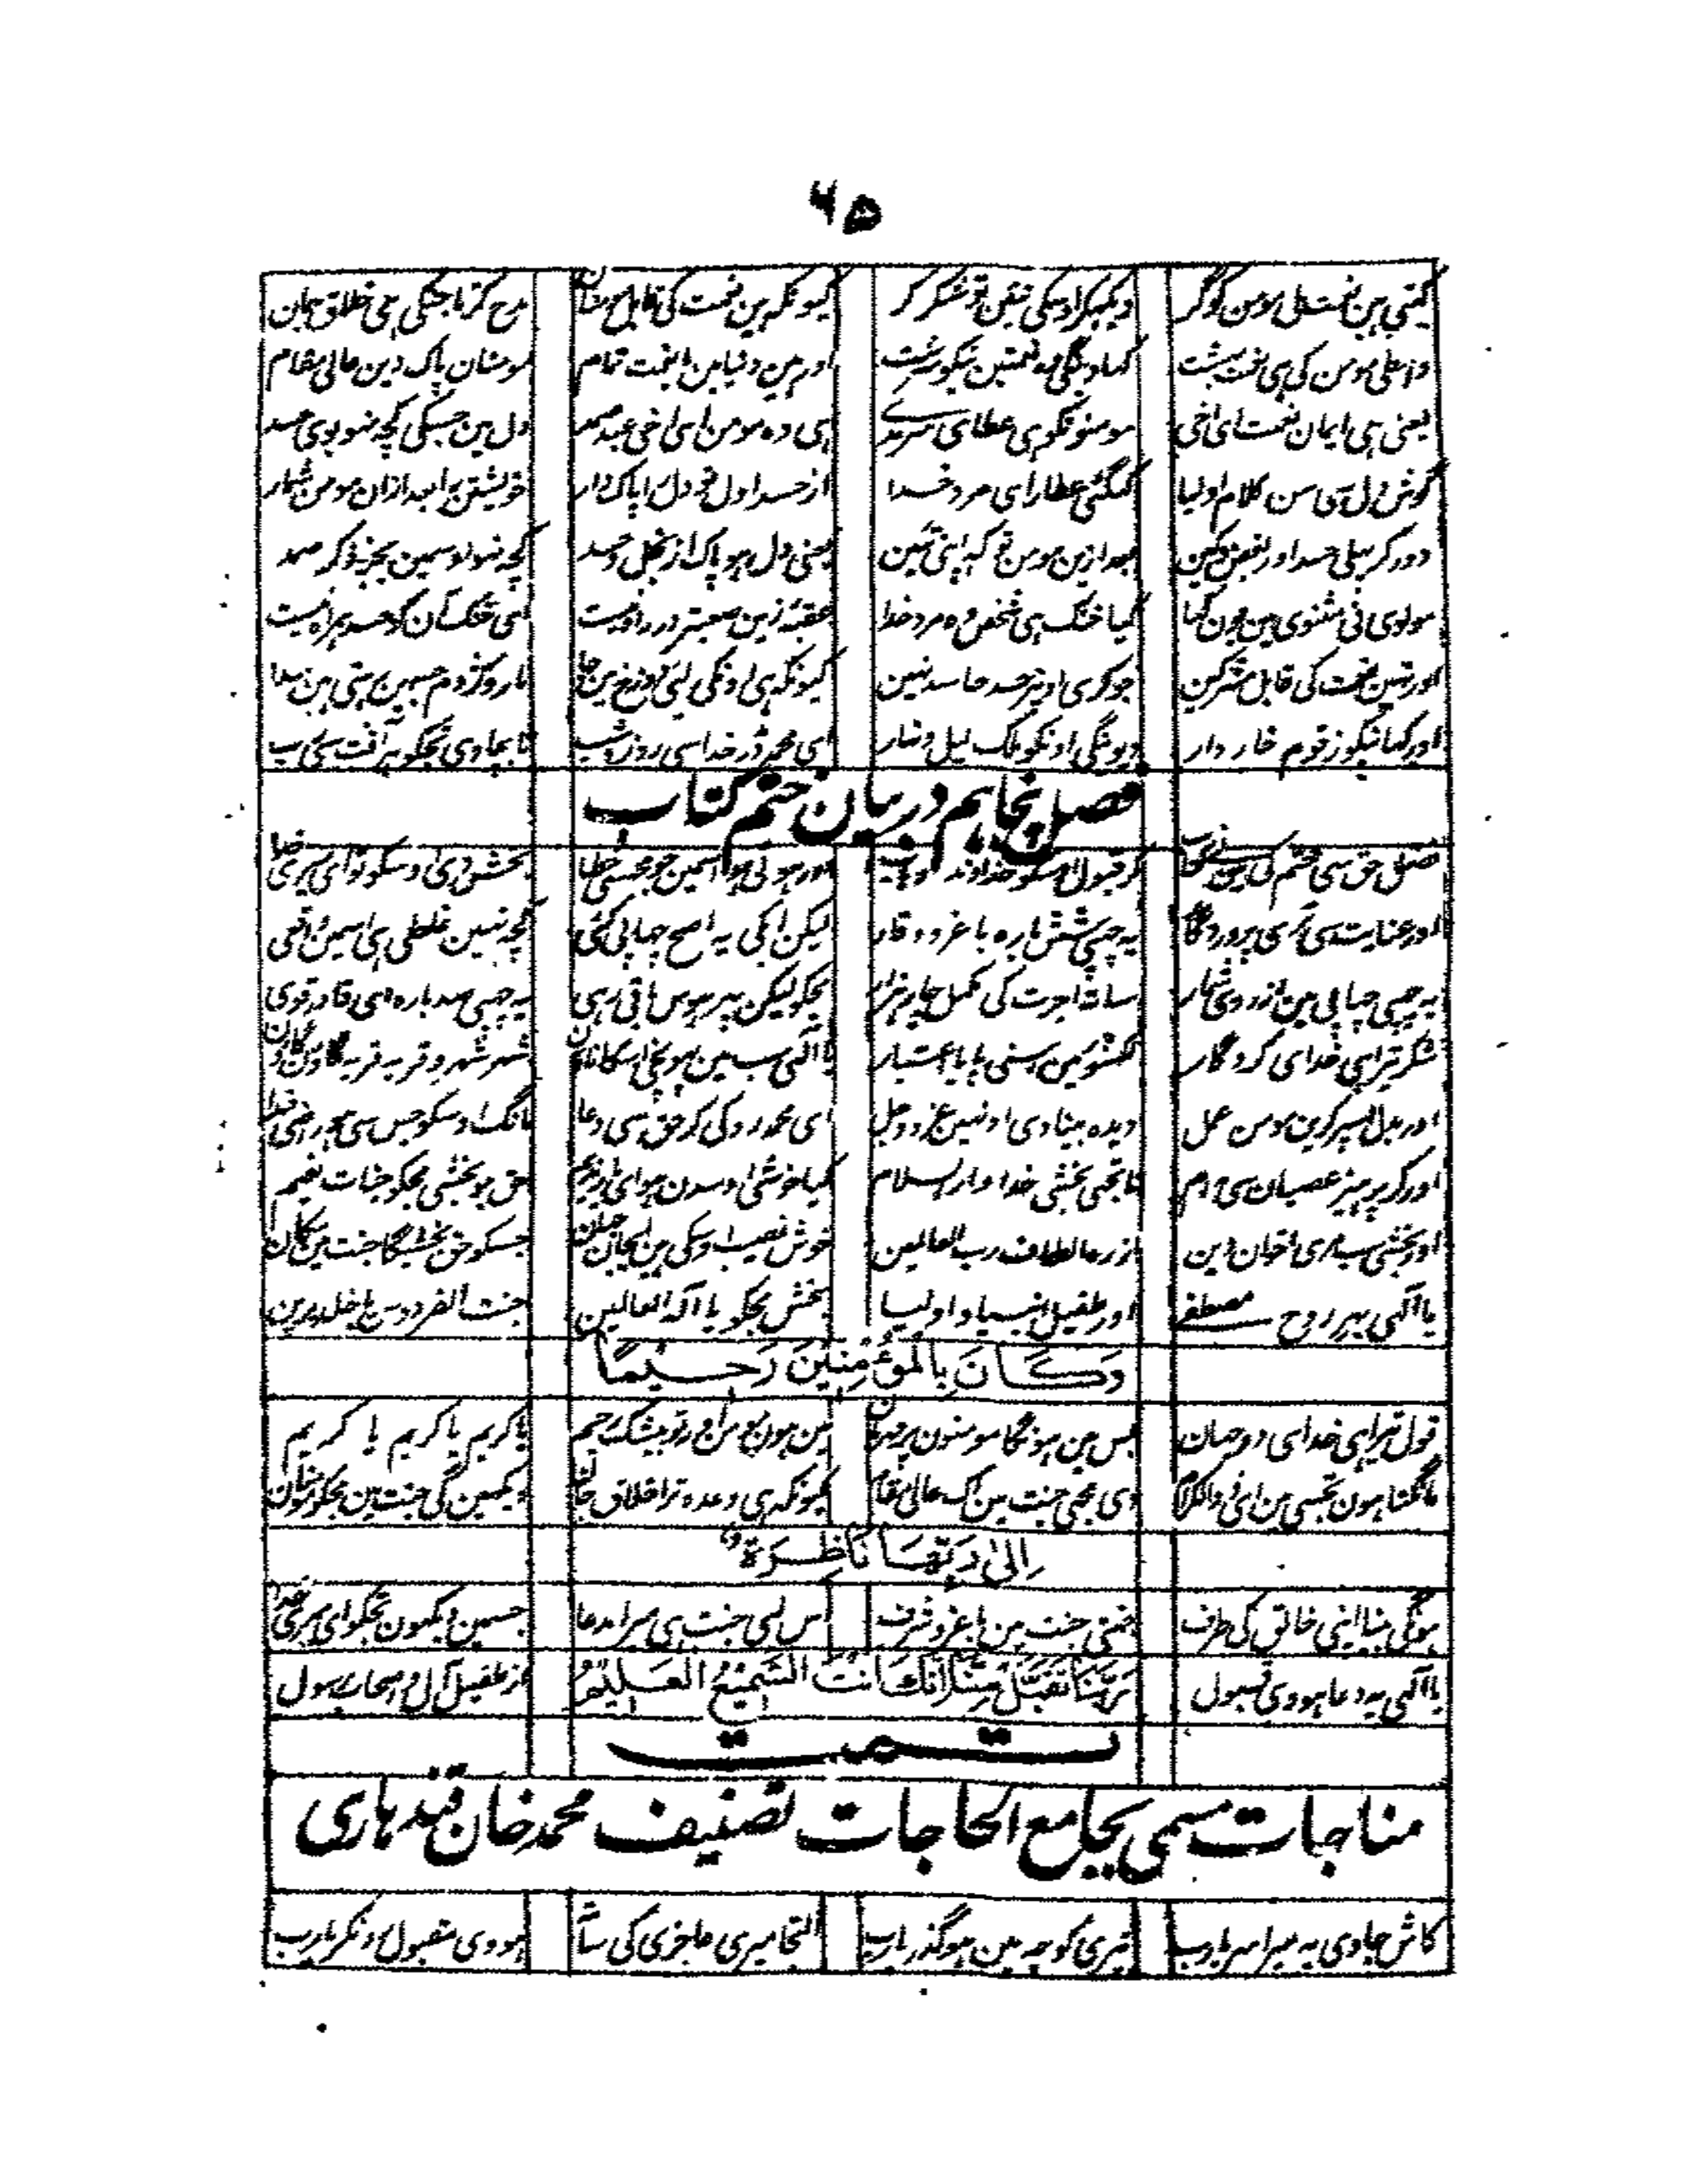 ۶۵
دیکہکر اوسکی تئین تو شکر کر کیونکہ ہین نعمت کی قابل مدح کرتا جسکی ہی خلاق جہان
واسطی مومن کی ہی نعمت بہشت نیکو سرشت اور ہین دنیا مین یا نعمت تمام مومنان پاک دین عالی مقام
یعنی ہی ایمان نعمت ای اخی مومنو نکو ہی عطای سرمدی ہی وہ مومن ای اخی عبد صمد دل مین جسکی کچہ نہووی حسد
گوش دل سی سن کلام اولیا کہگئی عطار ای مرد خدا از حسد اول تو دل را پاک دار خویشتن را بعد ازان مومن شمار
دور کر پہلی حسد اور بغض و کین بعد ازین مومن تو کہہ اپنی تئین یعنی دل ہو پاک از بخل و حسد کچہ نہو اوسمین بجز ذکر صمد
مولوی نی مثنوی مین یون کہا کیا خنک ہی شخص وہ مرد خدا عقبۂ زین صعبتر در راہ نیست ای خنک آن کو حسد ہمراہ نیست
اور نہین نعمت کی قابل مشرکین جو کری اوپر حسد حاسد نہین کیونکہ ہی اونکی لئی دوزخ مین مار و کژدم جسمین رہتی ہین سدا
اور کہانیکو زقوم خار دار دیونگی اونکو ملک لیل و نہار ای محمد ڈر خدا سی روز و شب تا بچاوی تجکو ہر آفت سی رب
فصل پنجاہم در بیان ختم کتاب
فضل حق سی ختم کی مین نی کتاب کر قبول اسکو خداوند اور ہوئی ہو اسمین جو مجسی خطا بخش دی اوسکو تو ای میری خدا
اور عنایت سی تری پروردگار یہ چہپی شش بارہ با عز و وقار لیکن ابکی یہ اصح چہاپی گئی کچہ نہین غلطی ہی اسمین واقعی
یہ چہپی چہاپی مین از روی شمار سات اجرت کی مکمل چار ہزار مجکو لیکن پہر ہوس باقی رہی یہ چہپی صد بارہ ای قادر قوی
شکر تیرا ہی خدای کردگار لکہنؤ مین اسنی پایا اعتبار یا الٰہی سب مین ہو نچی شہر شہر و قریہ قریہ گاؤن
اور بدل اسپر کرین مومن عمل دیدہ بینا دی اونہین عز و جل ای محمد روکی کر حق سی دعا مانگ اوسکو جس سی ہو راضی خدا
اور کر پرہیز عصیان سی مدام تا تجی بخشی خدا دار السلام کیا خوشی اوسدن ہو ای حق جو بخشی مجکو جنات نعیم
اور بخشی سب مری اخوان دین از رہ الطاف رب العالمین خوش نصیب اوسکی ہین جسکو حق بخشیگا جنت مین مکان
یا الٰہی بہر روح مصطفےٰ اور طفیل انبیا و اولیا بخش مجکو یا الٰہ العالمین جنت الفردوس یا خلد برین
وَكَانَ بِالْمُؤْمِنِيْنَ رَحِيْمًا
قول تیرا ہی خدای دو جہان بس مین ہونگا مومنون پر مہربان مین ہون مومن اور تو بیشک رحیم یا کریم یا کریم یا کریم
مانگتا ہون تجسی مین ای ذو الکرام دی مجی جنت مین اک عالی مقام کیونکہ ہی وعدہ ترا خلاق دیکہین گی جنت مین مجکو مومنان
اِلٰى رَبِّهَا نَاظِرَةٌ
ہونگی بینا اپنی خالق کی طرف جنتی جنت مین با عز و شرف اس لئی جنت ہی میرا مدعا جسمین دیکہون تجکو ای میری خدا
یا الٰہی یہ دعا ہووی قبول رَبَّنَا تَقَبَّلْ مِنَّا اِنَّكَ اَنْتَ السَّمِيْعُ الْعَلِيْمُ از طفیل آل و اصحاب رسول
تمت
مناجات مسمی بجامع الحاجات تصنیف محمد خان قندہاری
کاش جاوی یہ میرا سر یارب تیری کوچہ مین ہو گذر یارب التجا میری عاجزی کی ساتہ ہووی مقبول رد نکر یارب